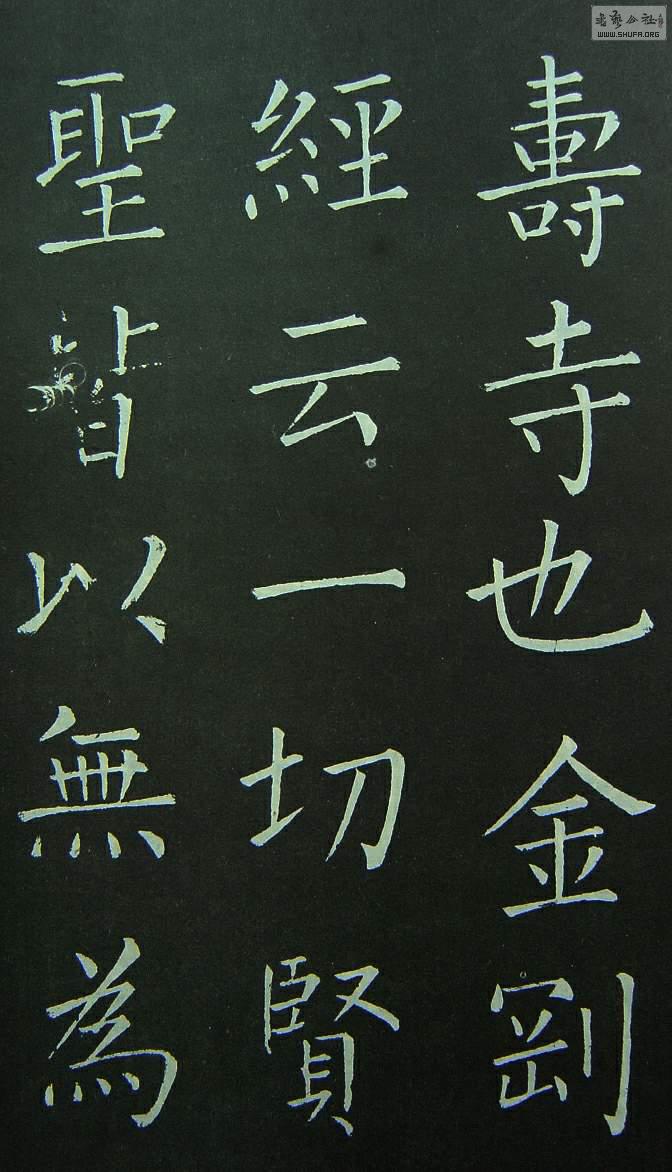 壽寺也金剛
經云一切賢
聖皆以無為
WWW.SHUFA.ORG